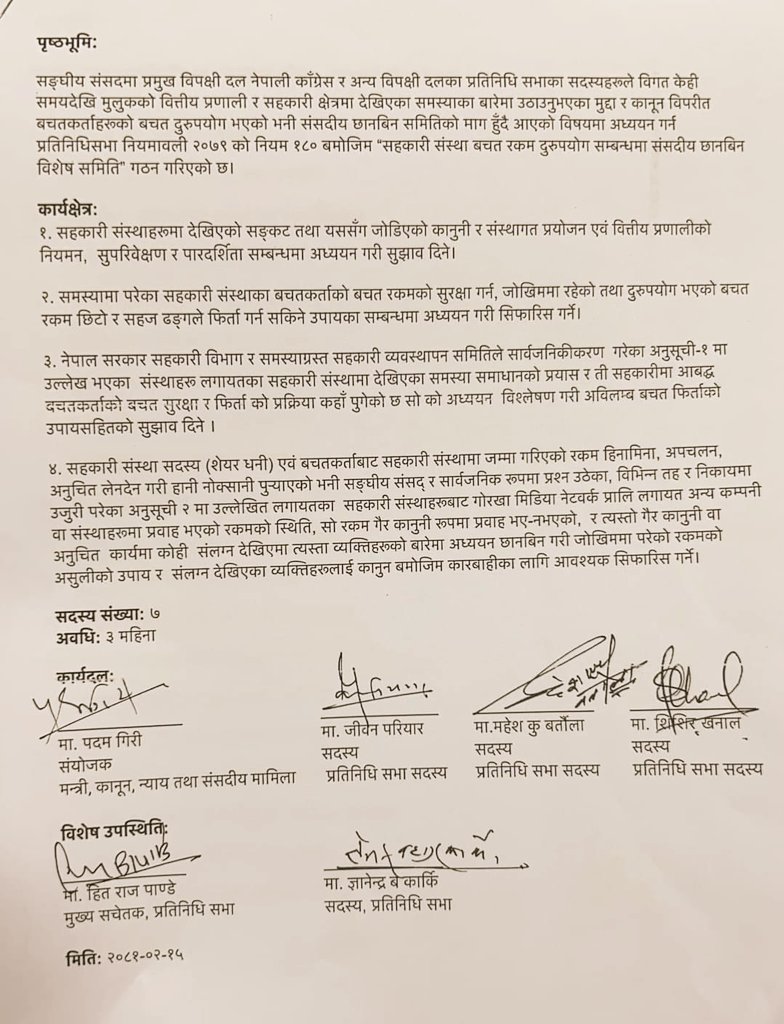 पृष्ठभूमिः
सङ्घीय संसदमा प्रमुख विपक्षी दल नेपाली काँग्रेस र अन्य विपक्षी दलका प्रतिनिधि सभाका सदस्यहरूले विगत केही
समयदेखि मुलुकको वित्तीय प्रणाली र सहकारी क्षेत्रमा देखिएका समस्याका बारेमा उठाउनुभएका मुद्दा र कानून विपरीत
बचतकर्ताहरूको बचत दुरुपयोग भएको भनी संसदीय छानबिन समितिको माग हुँदै आएको विषयमा अध्ययन गर्न
प्रतिनिधिसभा नियमावली २०७९ को नियम १८० बमोजिम "सहकारी संस्था बचत रकम दुरुपयोग सम्बन्धमा संसदीय छानबिन
विशेष समिति" गठन गरिएको छ।
कार्यक्षेत्रः
१. सहकारी संस्थाहरूमा देखिएको सङ्कट तथा यससँग जोडिएको कानुनी र संस्थागत प्रयोजन एवं वित्तीय प्रणालीको
नियमन, सुपरिवेक्षण र पारदर्शिता सम्बन्धमा अध्ययन गरी सुझाव दिने।
२. समस्यामा परेका सहकारी संस्थाका बचतकर्ताको बचत रकमको सुरक्षा गर्न, जोखिममा रहेको तथा दुरुपयोग भएको बचत
रकम छिटो र सहज ढङ्गले फिर्ता गर्न सकिने उपायका सम्बन्धमा अध्ययन गरी सिफारिस गर्ने।
३. नेपाल सरकार सहकारी विभाग र समस्याग्रस्त सहकारी व्यवस्थापन समितिले सार्वजनिकीकरण गरेका अनुसूची-१ मा
उल्लेख भएका संस्थाहरू लगायतका सहकारी संस्थामा देखिएका समस्या समाधानको प्रयास र ती सहकारीमा आबद्ध
बचतकर्ताको बचत सुरक्षा र फिर्ता को प्रक्रिया कहाँ पुगेको छ सो को अध्ययन विश्लेषण गरी अविलम्ब बचत फिर्ताको
उपायसहितको सुझाव दिने ।
४. सहकारी संस्था सदस्य (शेयर धनी) एवं बचतकर्ताबाट सहकारी संस्थामा जम्मा गरिएको रकम हिनामिना, अपचलन,
अनुचित लेनदेन गरी हानी नोक्सानी पुऱ्याएको भनी सङ्घीय संसद् र सार्वजनिक रूपमा प्रश्न उठेका, विभिन्न तह र निकायमा
उजुरी परेका अनुसूची २ मा उल्लेखित लगायतका सहकारी संस्थाहरूबाट गोरखा मिडिया नेटवर्क प्रालि लगायत अन्य कम्पनी
वा संस्थाहरूमा प्रवाह भएको रकमको स्थिति, सो रकम गैर कानुनी रूपमा प्रवाह भए-नभएको, र त्यस्तो गैर कानुनी वा
अनुचित कार्यमा कोही संलग्न देखिएमा त्यस्ता व्यक्तिहरूको बारेमा अध्ययन छानबिन गरी जोखिममा परेको रकमको
असुलीको उपाय र संलग्न देखिएका व्यक्तिहरूलाई कानुन बमोजिम कारबाहीका लागि आवश्यक सिफारिस गर्ने।
सदस्य संख्याः ७
अवधिः ३ महिना
कार्यदलः
मा. पदम गिरी
संयोजक
मन्त्री, कानून, न्याय तथा संसदीय मामिला
मा. जीवन परियार
सदस्य
प्रतिनिधि सभा सदस्य
मा.महेश कु बर्तौला
सदस्य
प्रतिनिधि सभा सदस्य
मा. शिशिर खनाल
सदस्य
प्रतिनिधि सभा सदस्य
विशेष उपस्थितिः
मा. हित राज पाण्डे
मुख्य सचेतक, प्रतिनिधि सभा
मा. ज्ञानेन्द्र बे कार्कि
सदस्य, प्रतिनिधि सभा
मितिः २०८१-०२-१५